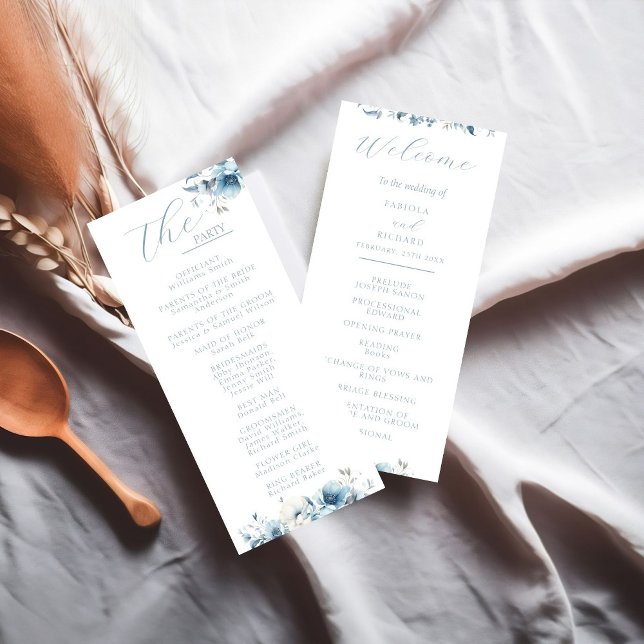 The
PARTY
OFFICIANT
Williams Smith
PARENTS OF THE BRIDE
Samantha & Smith
Anderson
PARENTS OF THE GROOM
Jessica & Samuel Wilson
MAID OF HONOR
Sarah Belk
BRIDESMAIDS
Aby Johnson,
Emma Parker,
Jenny Smith
Jessie Will
BEST MAN
Donald Bell
GROOMSMEN
David Williams,
James Walker,
Richard Smith
FLOWER GIRL
Madison Clarke
RING BEARER
Richard Baker
Welcome
To the wedding of
FABIOLA
and
RICHARD
FEBRUARY, 25TH 20XX
PRELUDE
JOSEPH SANON
PROCESSIONAL
EDWARD
OPENING PRAYER
READING
Books
CHANGE OF VOWS AND
RINGS
RRIAGE BLESSING
ENTATION OF
E AND GROOM
SIONAL